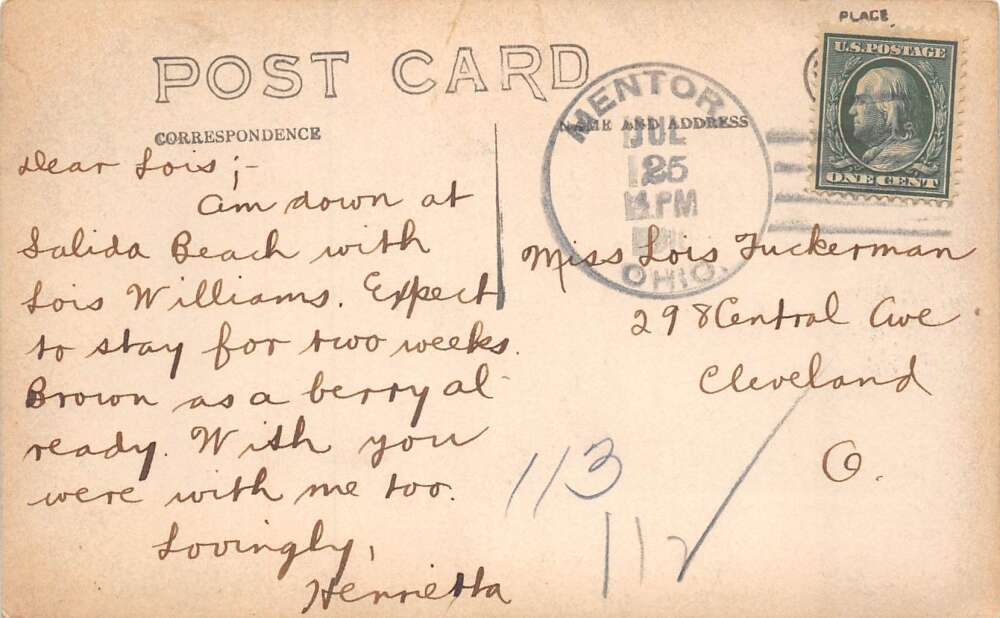 PLACE
U.S. POSTAGE
ONE CENT
POST CARD
MENTOR
JUL
25
PM
OHIO.
CORRESPONDENCE
NAME AND ADDRESS
Dear Lois;-
Am down at
Salida Beach with
Lois Williams. Expect
to stay for two weeks.
Brown as a berry al-
ready. Wish you
were with me too.
Lovingly,
Henrietta
Miss Lois Tuckerman
298 Central Ave
Cleveland
O.
113
112